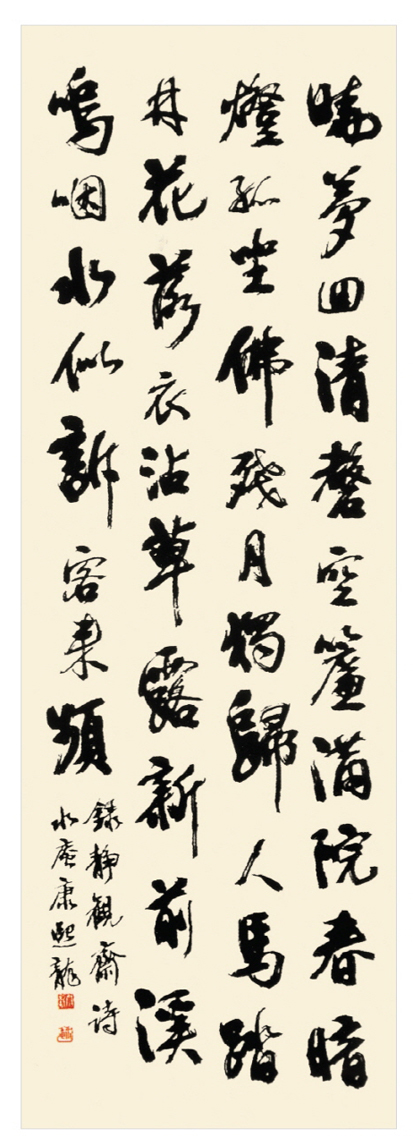 曉夢回清磬空簾滿院春暗
燈孤坐佛殘月獨歸人馬踏
林花落衣沾草露新前溪
嗚咽水似訴客來頻
錄靜觀齋詩
水庵康熙龍